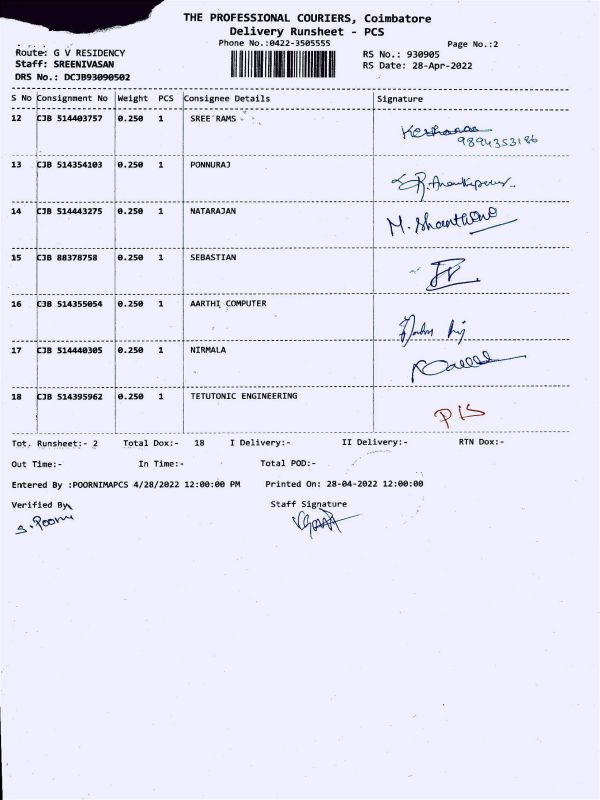 THE PROFESSIONAL COURIERS, Coimbatore
Delivery Runsheet - PCS
Phone No.:0422-3505555
Page No.:2
Route: G V RESIDENCY
RS No.: 930905
Staff: SREENIVASAN
RS Date: 28-Apr-2022
DRS No.: DCJB93090502
S No Consignment No Weight PCS Consignee Details Signature
12 CJB 514403757 0.250 1 SREE RAMS
9894353186
13 CJB 514354103 0.250 1 PONNURAJ
14 CJB 514443275 0.250 1 NATARAJAN M.
15 CJB 88378758 0.250 1 SEBASTIAN
16 CJB 514355054 0.250 1 AARTHI COMPUTER
17 CJB 514440305 0.250 1 NIRMALA
18 CJB 514395962 0.250 1 TETUTONIC ENGINEERING
Tot. Runsheet:- 2 Total Dox:- 18 I Delivery:- II Delivery:- RTN Dox:-
Out Time:- In Time:- Total POD:-
Entered By :POORNIMAPCS 4/28/2022 12:00:00 PM Printed On: 28-04-2022 12:00:00
Verified By Staff Signature
S. Poorni